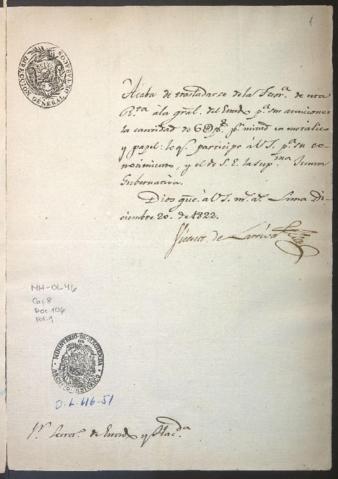 1
Acaba de trasladarse de la Tesor.ª de esta
á la gral. del Estado p.ª sus atenciones
la cantidad de p.r mitad en metálico
y papel: lo q.e participo á U.S. p.ª su co-
nocimiento, y el de S. E. la Sup.ma Junta
Gubernativa.
Dios gue. á U.S. m.s a.s Lima Di-
ciembre 20. de 1822.
de Larriva
MH-OL46
Caj. 8
Doc 106
Fol. 1
O.L. 46-51
S.r Secret.o de Estado y Hac.da